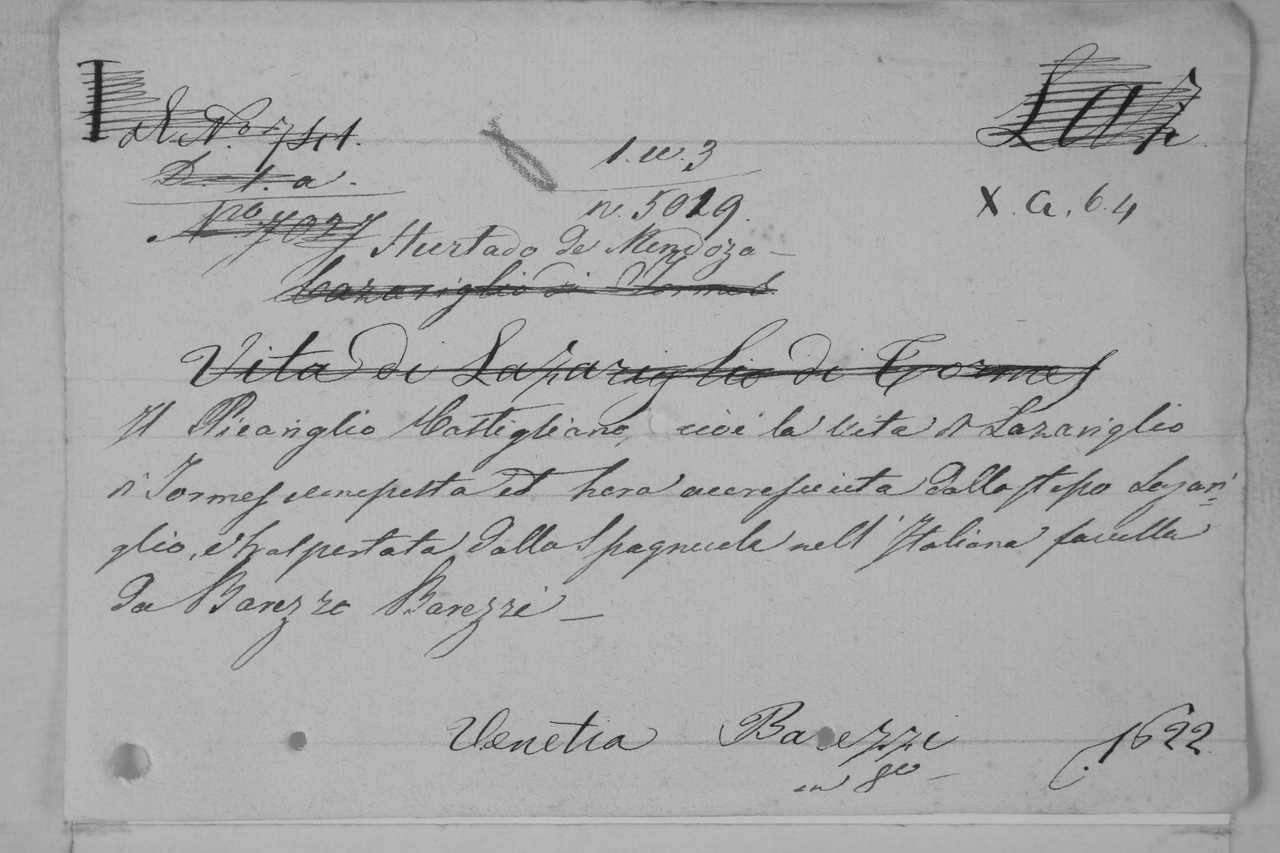 Laz
N.º 741.
D. 1. a.
1. w. 3
n. 5019.
X. a. 6. 4
Nro 7027
Hurtado de Mendoza —
Lazariglio di Tormes
Vita di Lazariglio di Tormes
Il Picariglio Castigliano, cioè la vita di Lazariglio
di Tormes composta et hora accresciuta dallo stesso Lazari-
glio, e trasportata dalla Spagnuola nell'Italiana favella
da Barezzo Barezzi —
Venetia Barezzi 1622.
in 8º —